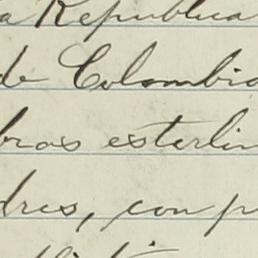 a Republica
de Colombia
bras esterlin
dres, con p